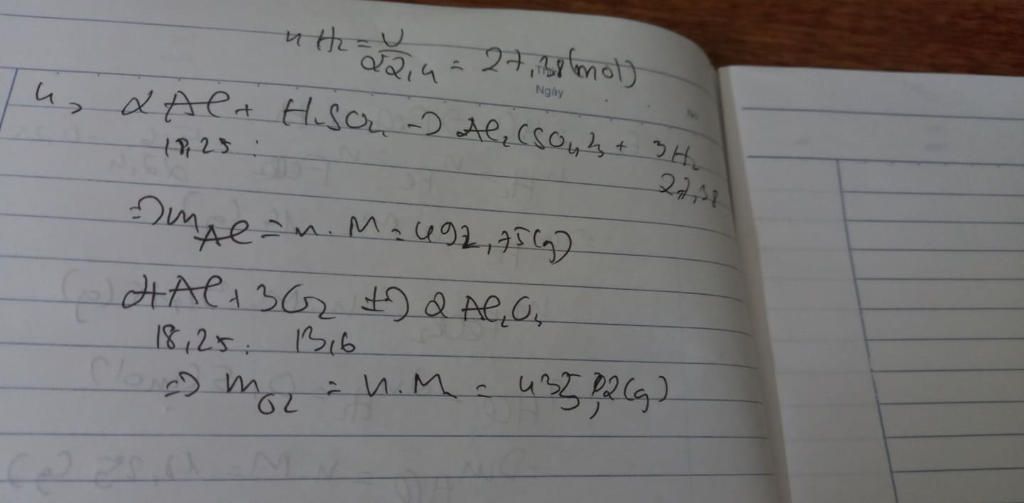 nH₂ = V/22,4 = 27,38(mol)
Ngày
4, 2Al + H₂SO₄ → Al₂(SO₄)₃ + 3H₂
18,25 : 27,38
⇒ mAl = n.M = 492,75(g)
4Al + 3O₂ t→ 2Al₂O₃
18,25 : 13,6
⇒ mO2 = n.M = 435,2(g)